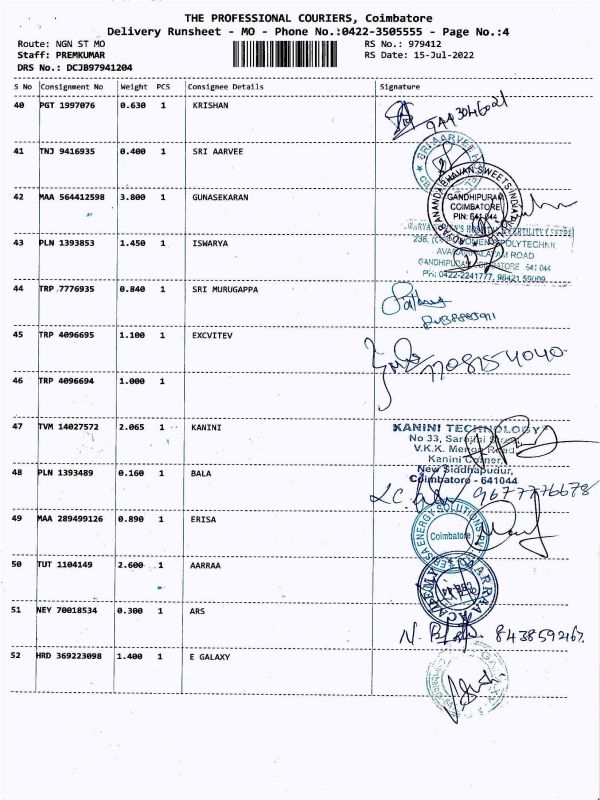 THE PROFESSIONAL COURIERS, Coimbatore
Delivery Runsheet - MO - Phone No.:0422-3505555 - Page No.:4
Route: NGN ST MO
RS No.: 979412
Staff: PREMKUMAR
RS Date: 15-Jul-2022
DRS No.: DCJB97941204
S No Consignment No Weight PCS Consignee Details Signature
40 PGT 1997076 0.630 1 KRISHAN
41 TNJ 9416935 0.400 1 SRI AARVEE
SRI AARVEE
42 MAA 564412598 3.800 1 GUNASEKARAN
ADYAR ANANDA BHAVAN SWEETS INDIA
GANDHIPURAM
COIMBATORE
PIN: 641 044
43 PLN 1393853 1.450 1 ISWARYA
WOMEN'S POLYTECHNIC
ROAD
641 044
Ph: 0422-2241777,
44 TRP 7776935 0.840 1 SRI MURUGAPPA
45 TRP 4096695 1.100 1 EXCVITEV
7708154040
46 TRP 4096694 1.000 1
47 TVM 14027572 2.065 1 KANINI
KANINI TECHNOLOGY
No 33,
V.K.K. Menon Road
Kanini Corner,
New Siddhapudur,
Coimbatore - 641044
48 PLN 1393489 0.160 1 BALA
9677776678
49 MAA 289499126 0.890 1 ERISA
ENERGY SOLUTIONS
Coimbatore
50 TUT 1104149 2.600 1 AARRAA
AARRAA ACADEMY
51 NEY 70018534 0.300 1 ARS
8438592167.
52 HRD 369223098 1.400 1 E GALAXY